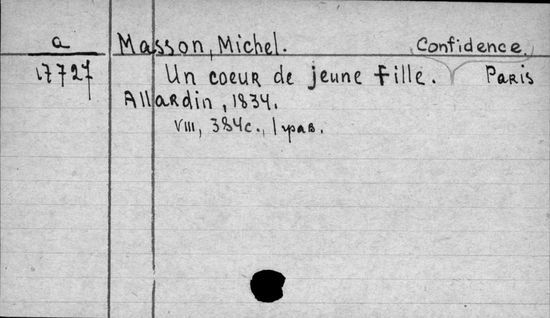 a Masson, Michel. Confidence.
17727 Un coeur de jeune fille. Paris
Allardin, 1834.
VIII, 384с., 1 грав.